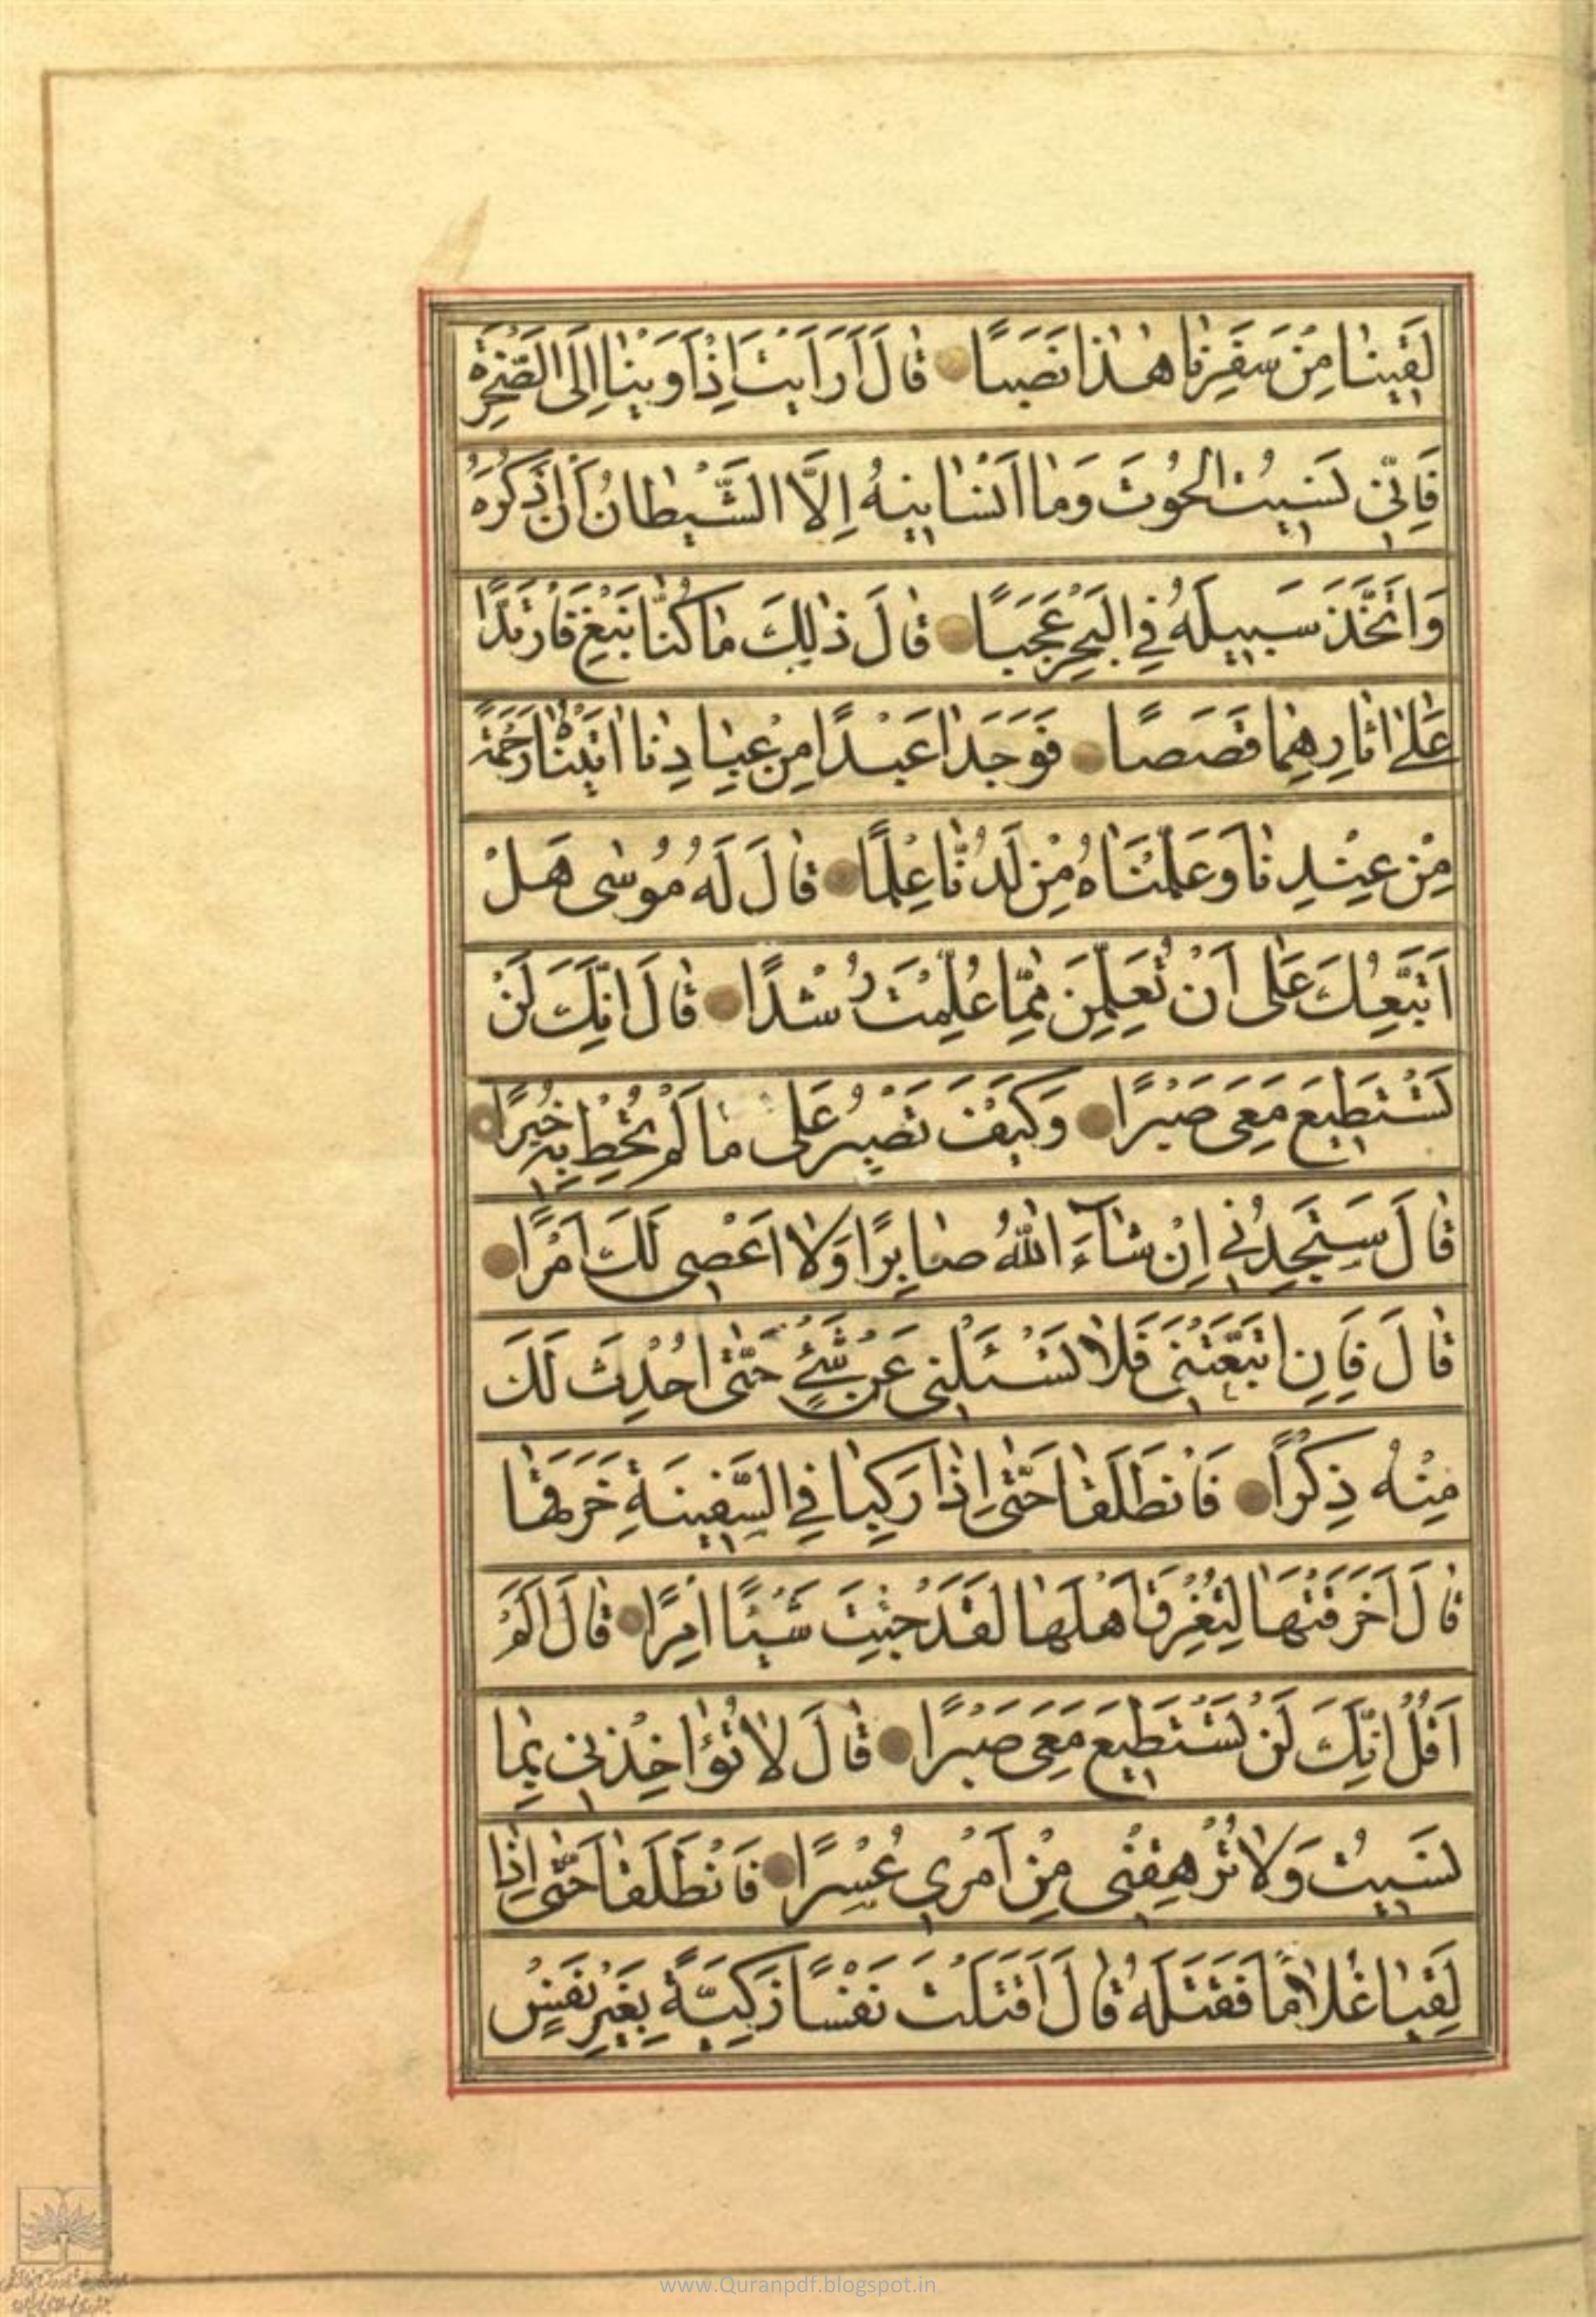 لَقِينَا مِنْ سَفَرِنَا هٰذَا نَصَبًا قَالَ اَرَاَيْتَ اِذْ اَوَيْنَا اِلَى الصَّخْرَةِ
فَاِنِّى نَسِيتُ الْحُوتَ وَمَا اَنْسَانِيهُ اِلَّا الشَّيْطَانُ اَنْ اَذْكُرَهُ
وَاتَّخَذَ سَبِيلَهُ فِي الْبَحْرِ عَجَبًا قَالَ ذٰلِكَ مَا كُنَّا نَبْغِ فَارْتَدَّا
عَلٰى اٰثَارِهِمَا قَصَصًا فَوَجَدَا عَبْدًا مِنْ عِبَادِنَا اٰتَيْنَاهُ رَحْمَةً
مِنْ عِنْدِنَا وَعَلَّمْنَاهُ مِنْ لَدُنَّا عِلْمًا قَالَ لَهُ مُوسٰى هَلْ
اَتَّبِعُكَ عَلٰى اَنْ تُعَلِّمَنِ مِمَّا عُلِّمْتَ رُشْدًا قَالَ اِنَّكَ لَنْ
تَسْتَطِيعَ مَعِىَ صَبْرًا وَكَيْفَ تَصْبِرُ عَلٰى مَا لَمْ تُحِطْ بِهِ خُبْرًا
قَالَ سَتَجِدُنِي اِنْ شَآءَ اللّٰهُ صَابِرًا وَلَا اَعْصِى لَكَ اَمْرًا
قَالَ فَاِنِ اتَّبَعْتَنِى فَلَا تَسْئَلْنِى عَنْ شَيْءٍ حَتّٰى اُحْدِثَ لَكَ
مِنْهُ ذِكْرًا فَانْطَلَقَا حَتّٰى اِذَا رَكِبَا فِي السَّفِينَةِ خَرَقَهَا
قَالَ اَخَرَقْتَهَا لِتُغْرِقَ اَهْلَهَا لَقَدْ جِئْتَ شَيْئًا اِمْرًا قَالَ اَلَمْ
اَقُلْ اِنَّكَ لَنْ تَسْتَطِيعَ مَعِىَ صَبْرًا قَالَ لَا تُؤَاخِذْنِى بِمَا
نَسِيتُ وَلَا تُرْهِقْنِى مِنْ اَمْرِي عُسْرًا فَانْطَلَقَا حَتّٰى اِذَا
لَقِيَا غُلَامًا فَقَتَلَهُ قَالَ اَقَتَلْتَ نَفْسًا زَكِيَّةً بِغَيْرِ نَفْسٍ
www.Quranpdf.blogspot.in